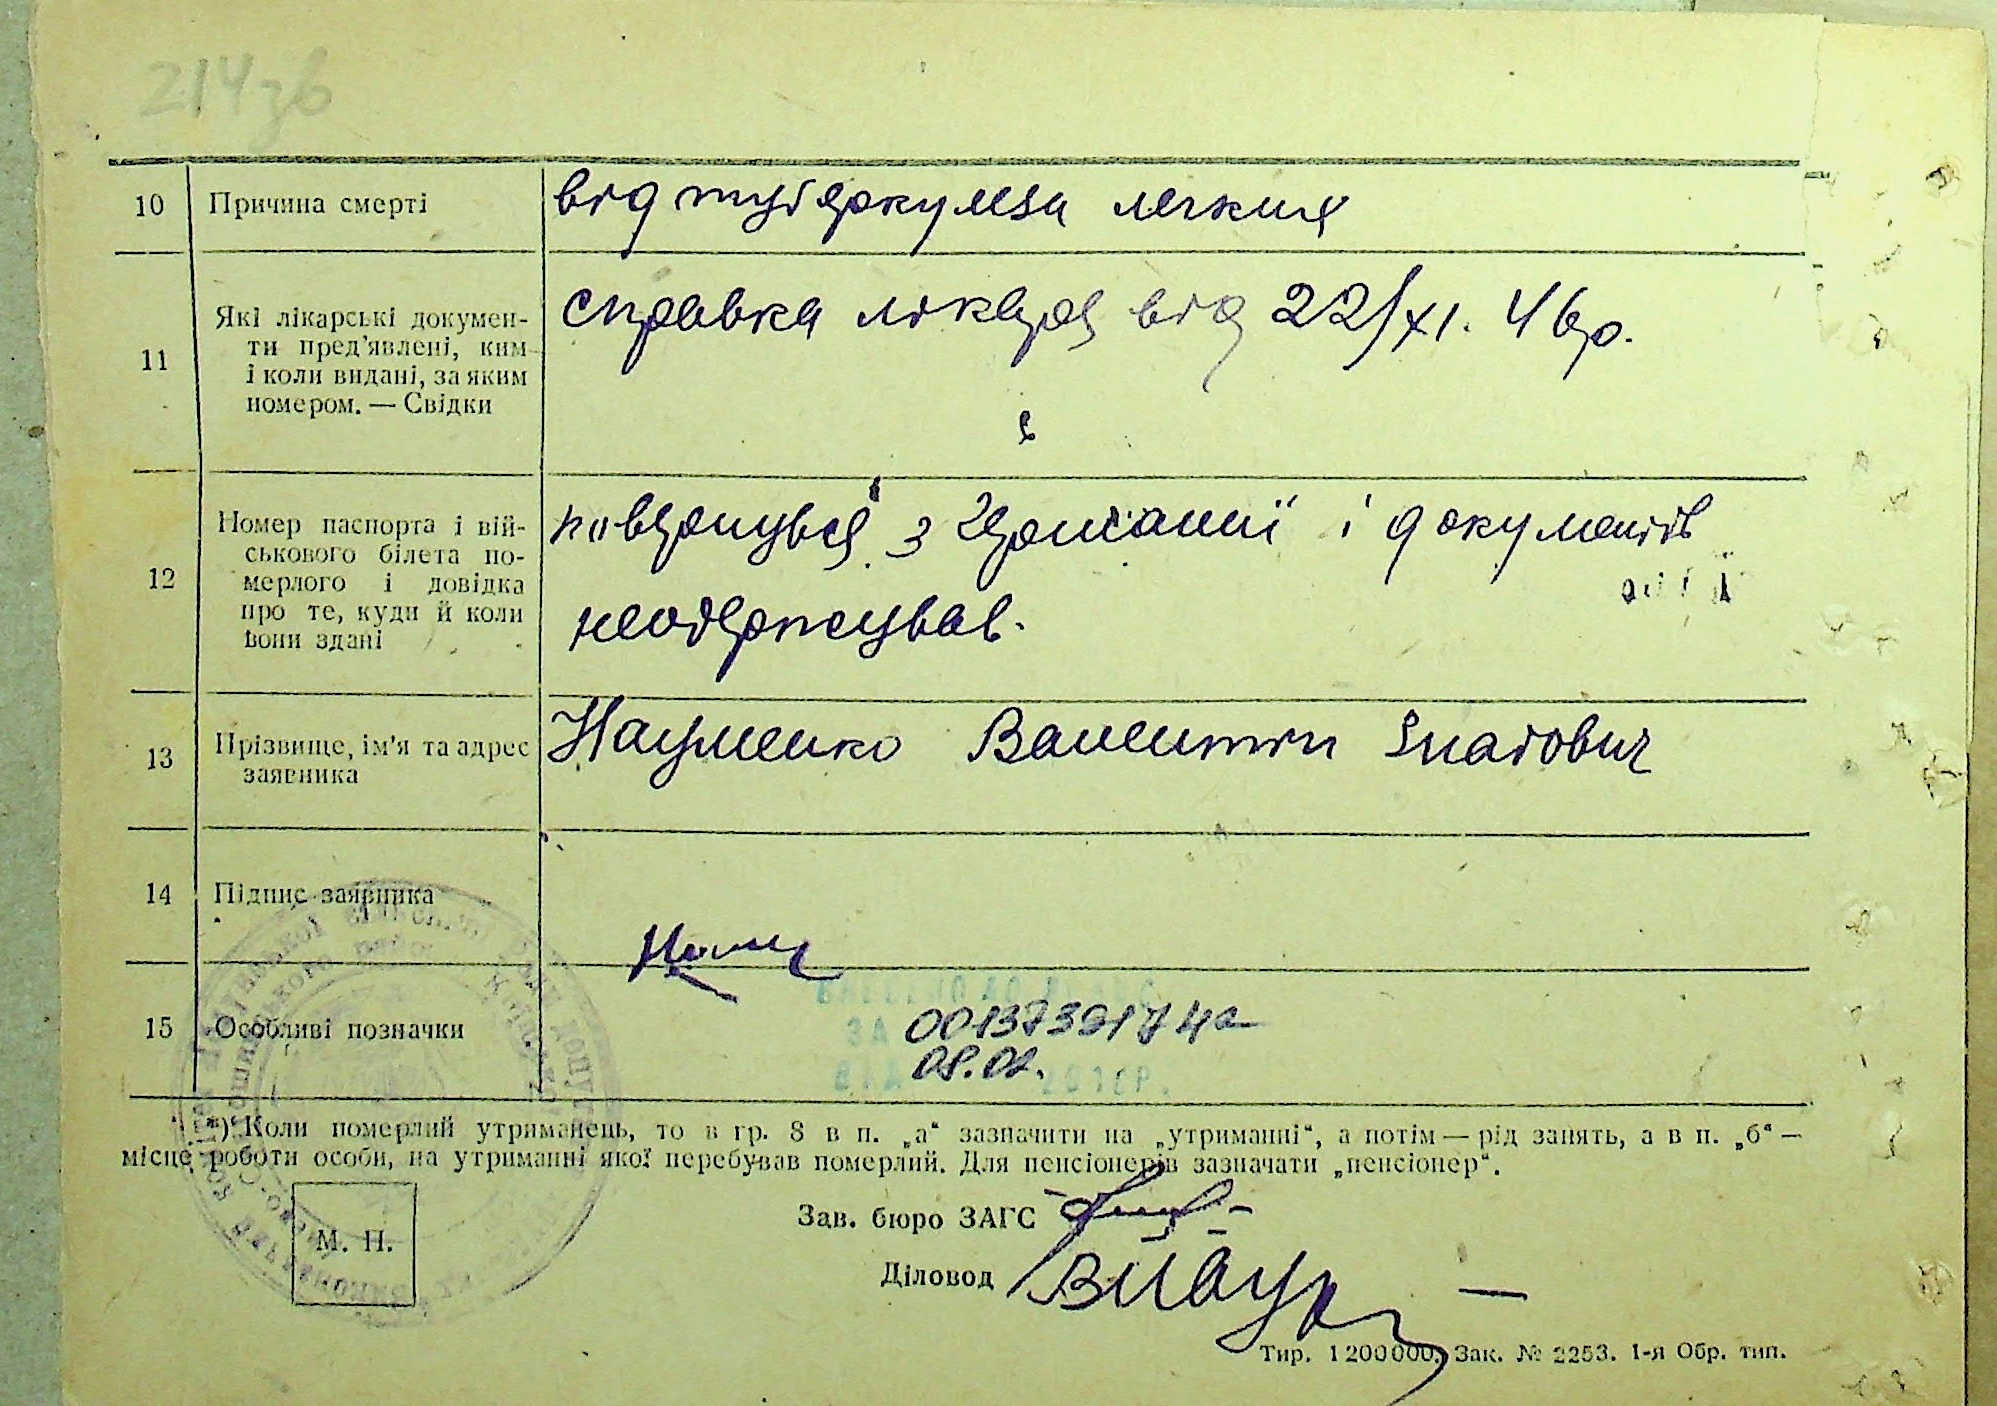 214зв
10 Причина смерті від туберкулеза легких
11 Які лікарські докумен-
ти пред'явлені, ким
і коли видані, за яким
номером. — Свідки
справка лікаря від 22/XI. 46р.
12 Номер паспорта і вій-
ськового білета по-
мерлого і довідка
про те, куди й коли
вони здані
повернувся з Германії і документів
неодержував.
13 Прізвище, ім'я та адрес
заявника
Науменко Валентин Гнатович
14 Підпис заявника
15 Особливі позначки
ВНЕСЕНО ДО
ЗА
00137391742
08.02.
ВІД 2016Р.
*) Коли померлий утриманець, то в гр. 8 в п. „а“ зазначити на „утриманні“, а потім — рід занять, а в п. „б“ —
місце роботи особи, на утриманні якої перебував померлий. Для пенсіонерів зазначати „пенсіонер“.
Зав. бюро ЗАГС
М. П.
Діловод
Тир. 1200000. Зак. № 2253. 1-я Обр. тип.